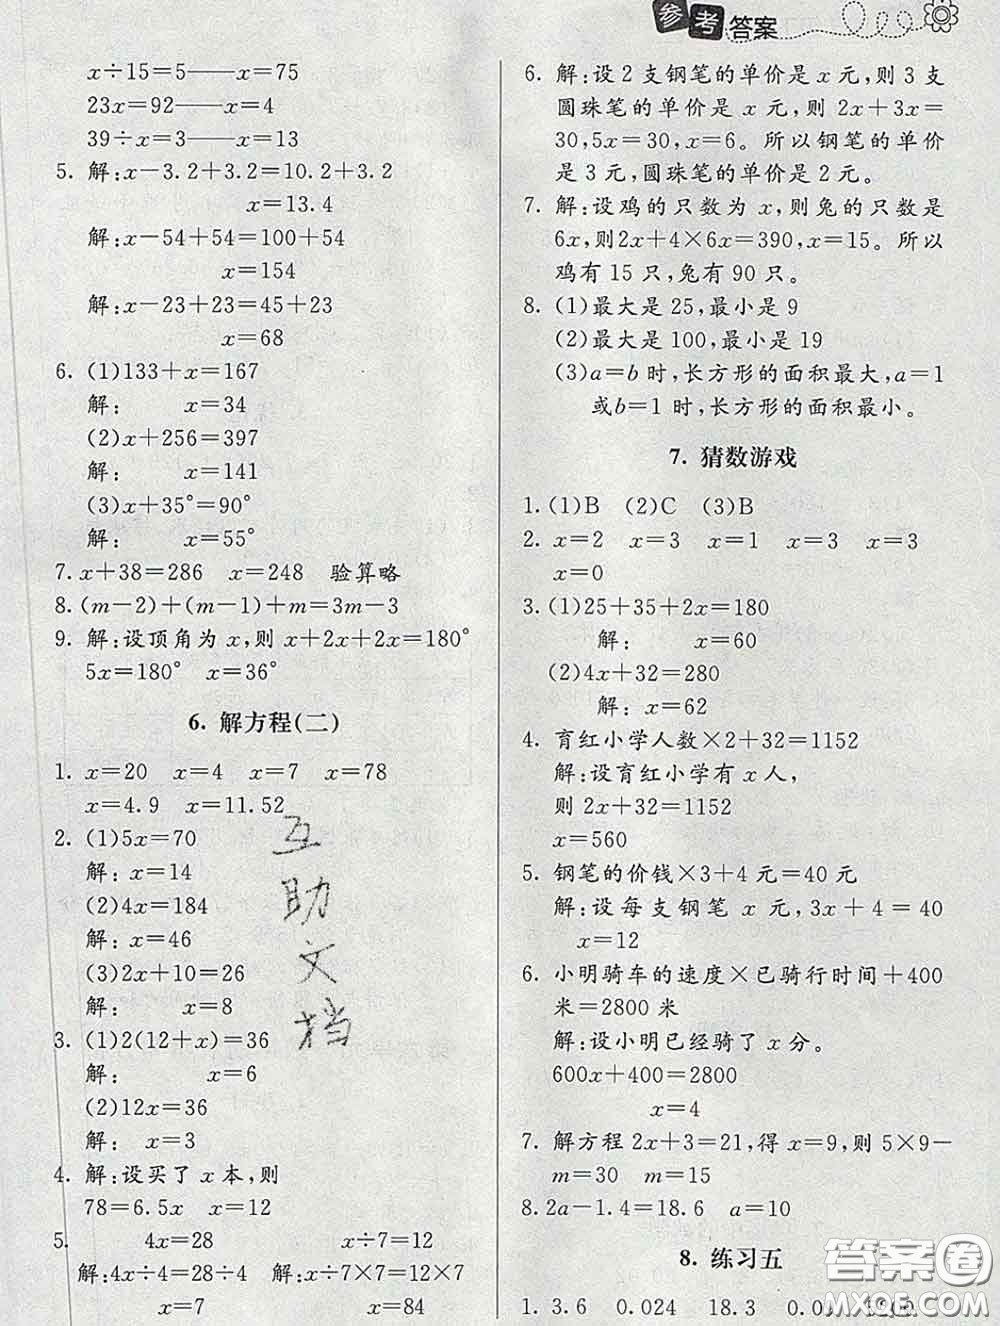 参考答案
x÷15=5——x=75
23x=92——x=4
39÷x=3——x=13
5. 解:x-3.2+3.2=10.2+3.2
x=13.4
解:x-54+54=100+54
x=154
解:x-23+23=45+23
x=68
6. (1)133+x=167
解: x=34
(2)x+256=397
解: x=141
(3)x+35°=90°
解: x=55°
7. x+38=286 x=248 验算略
8. (m-2)+(m-1)+m=3m-3
9. 解:设顶角为 x,则 x+2x+2x=180°
5x=180° x=36°
6. 解方程(二)
1. x=20 x=4 x=7 x=78
x=4.9 x=11.52
2. (1)5x=70
解:x=14
(2)4x=184
解:x=46
(3)2x+10=26
解: x=8
3. (1)2(12+x)=36
解: x=6
(2)12x=36
解: x=3
4. 解:设买了 x 本,则
78=6.5x x=12
5. 4x=28 x÷7=12
解:4x÷4=28÷4 解:x÷7×7=12×7
x=7 x=84
互助文档
6. 解:设 2 支钢笔的单价是 x 元,则 3 支
圆珠笔的单价是 x 元,则 2x+3x=
30,5x=30,x=6。所以钢笔的单价
是 3 元,圆珠笔的单价是 2 元。
7. 解:设鸡的只数为 x,则兔的只数是
6x,则2x+4×6x=390,x=15。所以
鸡有 15 只,兔有 90 只。
8. (1)最大是 25,最小是 9
(2)最大是 100,最小是 19
(3)a=b 时,长方形的面积最大,a=1
或b=1 时,长方形的面积最小。
7. 猜数游戏
1. (1)B (2)C (3)B
2. x=2 x=3 x=1 x=3 x=3
x=0
3. (1)25+35+2x=180
解: x=60
(2)4x+32=280
解: x=62
4. 育红小学人数×2+32=1152
解:设育红小学有 x 人,
则 2x+32=1152
x=560
5. 钢笔的价钱×3+4 元=40 元
解:设每支钢笔 x 元,3x+4=40
x=12
6. 小明骑车的速度×已骑行时间+400
米=2800 米
解:设小明已经骑了 x 分。
600x+400=2800
x=4
7. 解方程 2x+3=21,得 x=9,则 5×9-
m=30 m=15
8. 2a-1.4=18.6 a=10
8. 练习五
1. 3.6 0.024 18.3
答案圈
MXQE.COM